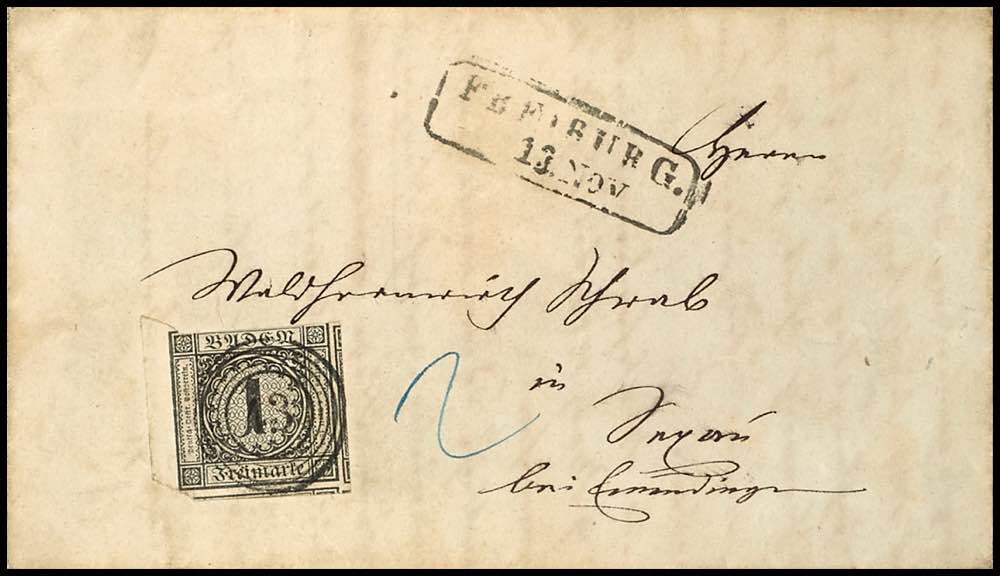 FREIBURG.
13. NOV
Herrn
Waldhornwirth Schwab
in
Sexau
bei Emmendingen
2
BADEN
1
Freimarke